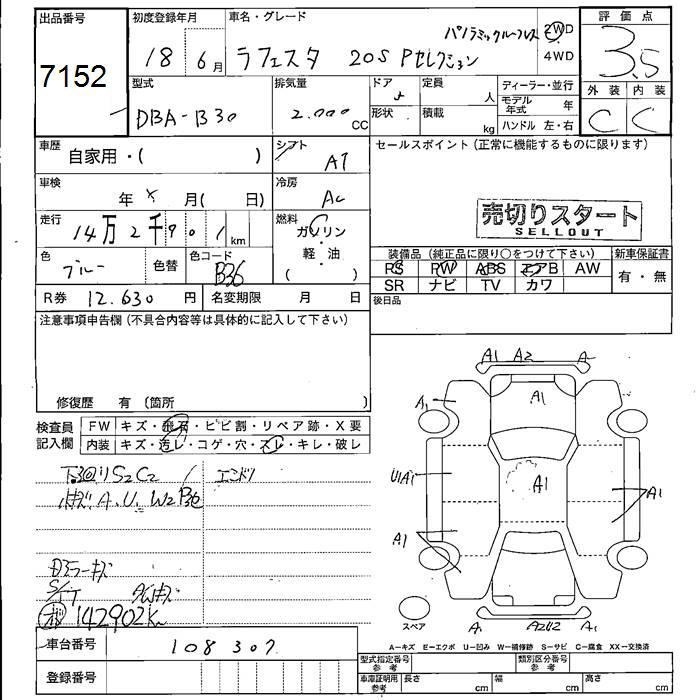 出品番号 初度登録年月 車名・グレード 評価点
7152 18年 6月 ラフェスタ 20S Pセレクション パノラミックルーフレス 2WD 4WD 3.5
型式 排気量 ドア 定員 人 ディーラー・並行 外装 内装
DBA-B30 2.000cc 5 形状 積載 kg モデル年式 年 ハンドル 左・右 C C
車歴 自家用・( ) シフト AT セールスポイント(正常に機能するものに限ります)
車検 年 月( 日) 冷房 AC
売切りスタート
SELLOUT
走行 14万2千901km 燃料 ガソリン・軽・油 ( )
装備品(純正品に限り○をつけて下さい) 新車保証書
色 ブルー 色替 色コード B36 RS PW ABS エアB AW 有・無
SR ナビ TV カワ
R券 12.630円 名変期限 月 日 後日品
注意事項申告欄(不具合内容等は具体的に記入して下さい)
修復歴 有 〔箇所 〕
検査員記入欄 FW キズ・飛石・ヒビ割・リペア跡・X要
内装 キズ・汚レ・コゲ・穴・スレ・キレ・破レ
下回りS2C2
A.U.W2
キズ
142902Km
A1 A2 A
A1 A1
U1A1 A1 A1
A1
スペア A1 A2U2 A1
A-キズ E-エクボ U-凹み W-補修跡 S-サビ C-腐食 XX-交換済
車台番号 108307
型式指定番号 参考 類別区分番号 参考
登録番号 車庫証明用 参考 長さ cm 幅 cm 高さ cm